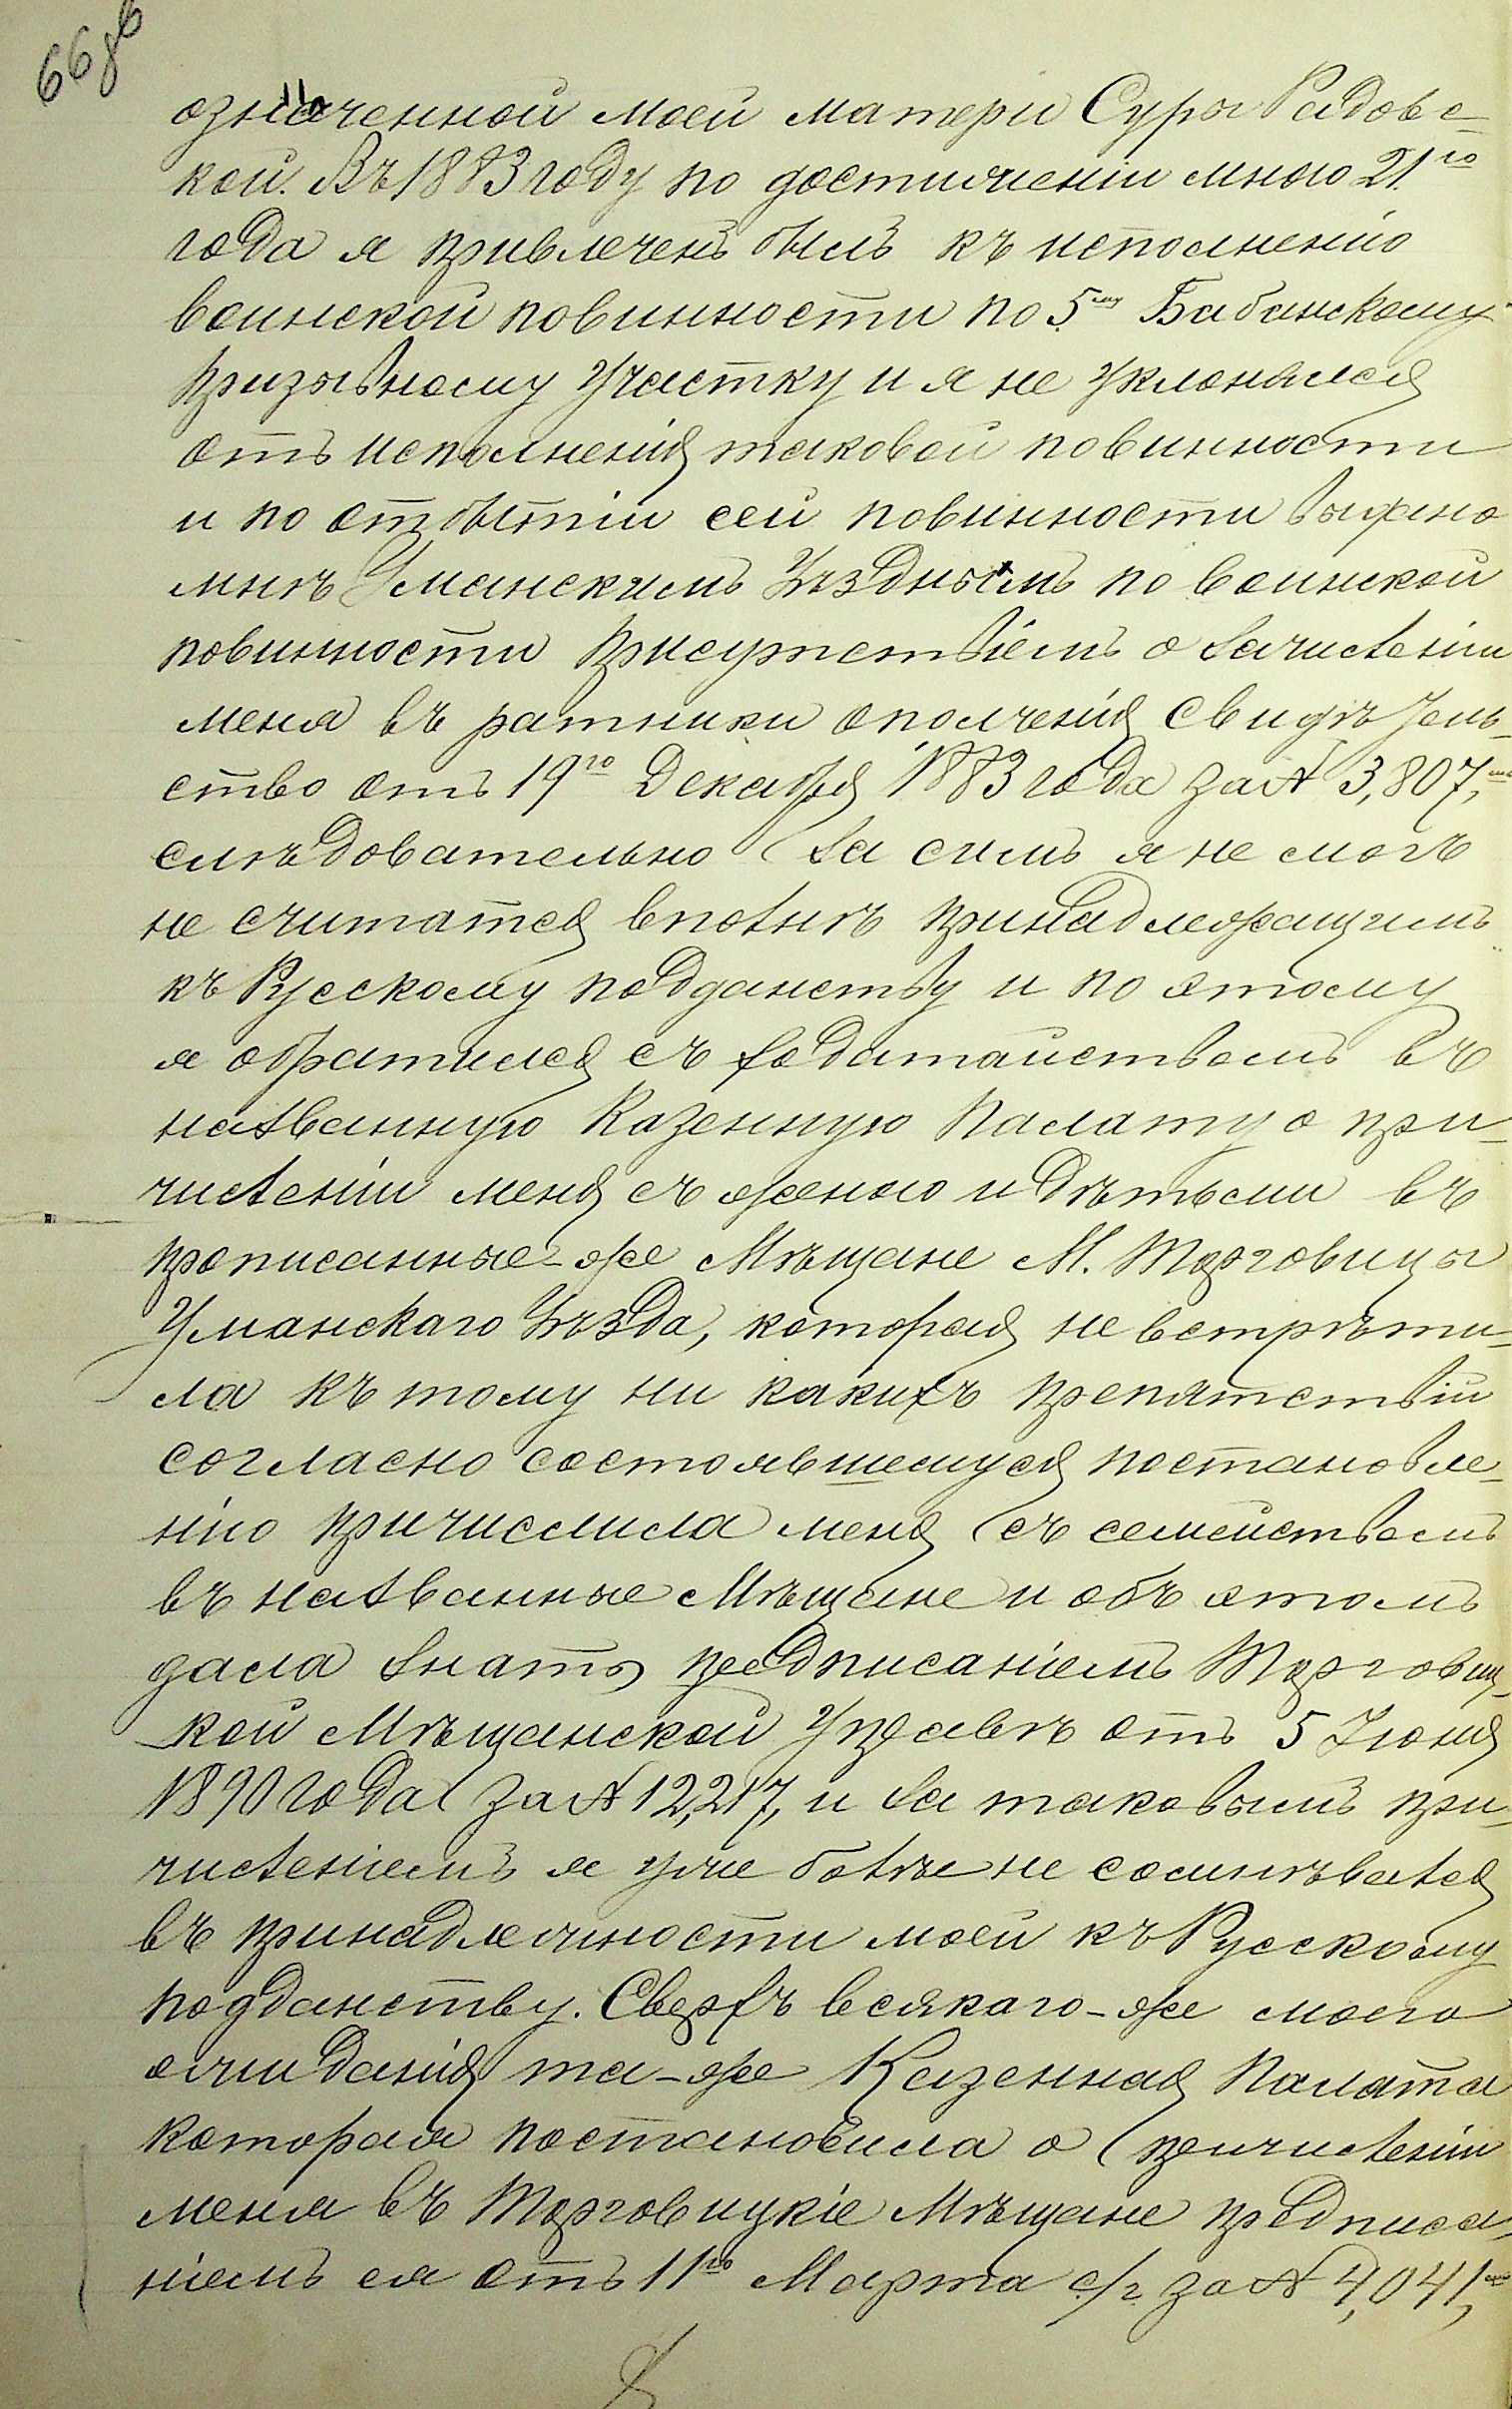 66 об
означенной моей матери Суры Радовс-
кой. Въ 1883 году по достиженіи мною 21го
года я привлеченъ былъ къ исполненію
воинской повинности по 5му Бабанскому
призывному участку и я не уклонялся
отъ исполненія таковой повинности
и по отбытіи сей повинности выдано
мнѣ Уманскимъ Уѣзднымъ по воинской
повинности присутствіемъ о зачисленіи
меня въ ратники ополченія свидѣтель-
ство отъ 19го Декабря 1883 года за № 3,807,мъ
слѣдовательно за симъ я не могъ
не считатся вполнѣ принадлежащимъ
къ Русскому подданству и по этому
я обратился съ ходатайствомъ въ
названную Казенную Палату о при-
численіи меня съ женою и дѣтьми въ
прописанные-же Мѣщане М. Торговицы
Уманскаго Уѣзда, которая не встрѣти-
ла къ тому ни какихъ препятствій
согласно состоявшемуся постановле-
нію причислила меня съ семействомъ
въ названные Мѣщане и объ этомъ
дала знать предписаніемъ Торговиц-
кой Мѣщанской Управѣ отъ 5 Іюня
1890 года за № 12,217, и за таковымъ при-
численіемъ я уже болѣе не сомнѣвался
въ принадлежности моей къ Русскому
подданству. Сверхъ всякаго-же моего
ожиданія та-же Казенная Палата
которая постановила о причисленіи
меня въ Торговицкіе Мѣщане предписа-
ніемъ ея отъ 11го Марта с/г за № 4,041,мъ